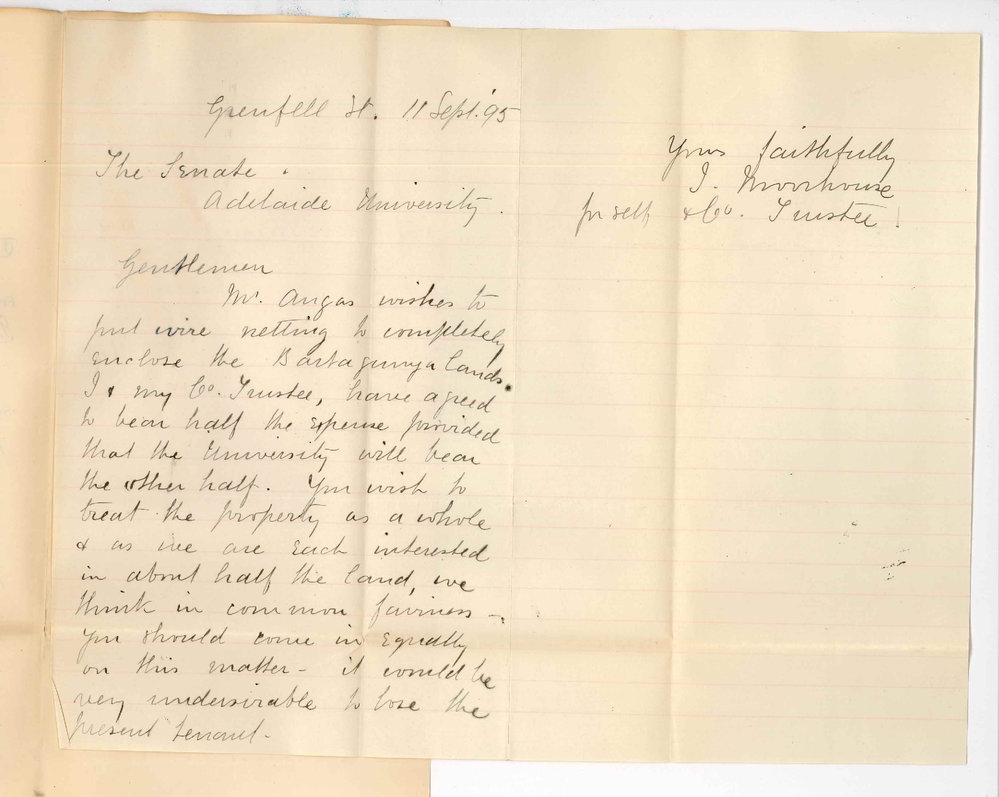 Grenfell St. 11 Sept. '95
The Senate.
Adelaide University.
Gentlemen
Mr. Angas wishes to
put wire netting to completely
enclose the Bartagunya lands.
I & my Co. Trustee, have agreed
to bear half the expense provided
that the University will bear
the other half. You wish to
treat the property as a whole
& as we are each interested
in about half the land, we
think in common fairness -
you should come in equally
on this matter - it would be
very undesirable to lose the
present tenant -
Yours faithfully
J. Moorhouse
for self & Co. Trustee